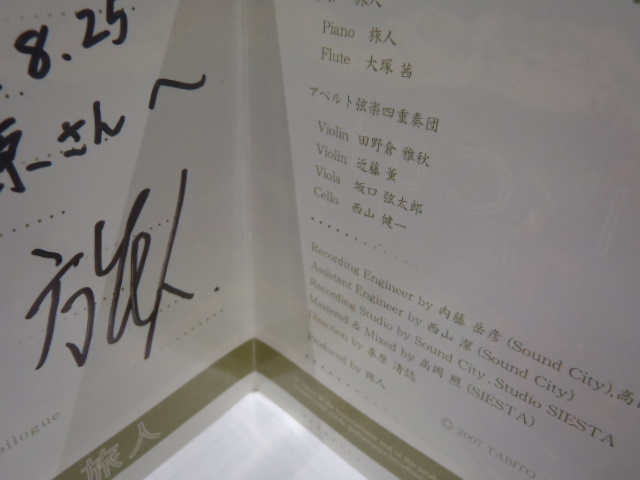 8.25
さん 〜
旅人
pilogue
旅人
旅人
Piano 旅人
Flute 大塚 茜
アベルト弦楽四重奏団
Violin 田野倉 雅秋
Violin 近藤 薫
Viola 坂口 弦太郎
Cello 西山 健一
Recording Engineer by 内藤 岳彦 (Sound City),高
Assistant Engineer by 西山 潔 (Sound City)
Recording Studio by Sound City, Studio SIESTA
Mastered & Mixed by 高岡 照 (SIESTA)
Direction by 桑原 清誌
Produced by 旅人
© 2007 TABITO